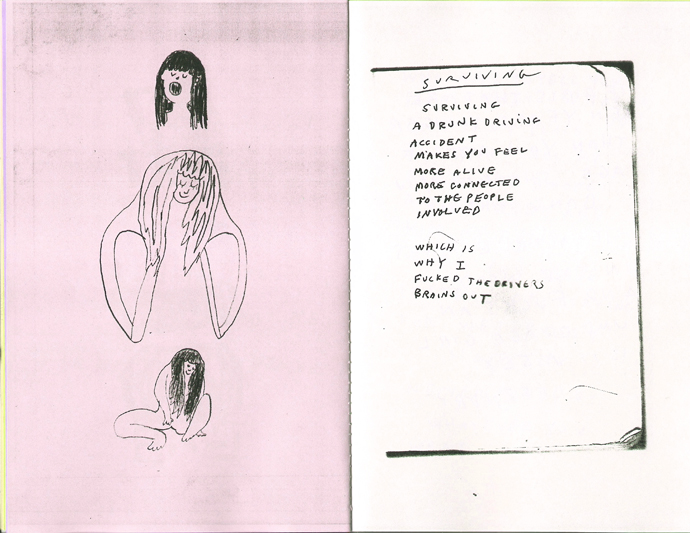 SURVIVING
SURVIVING
A DRUNK DRIVING
ACCIDENT
MAKES YOU FEEL
MORE ALIVE
MORE CONNECTED
TO THE PEOPLE
INVOLVED
WHICH IS
WHY I
FUCKED THE DRIVERS
BRAINS OUT